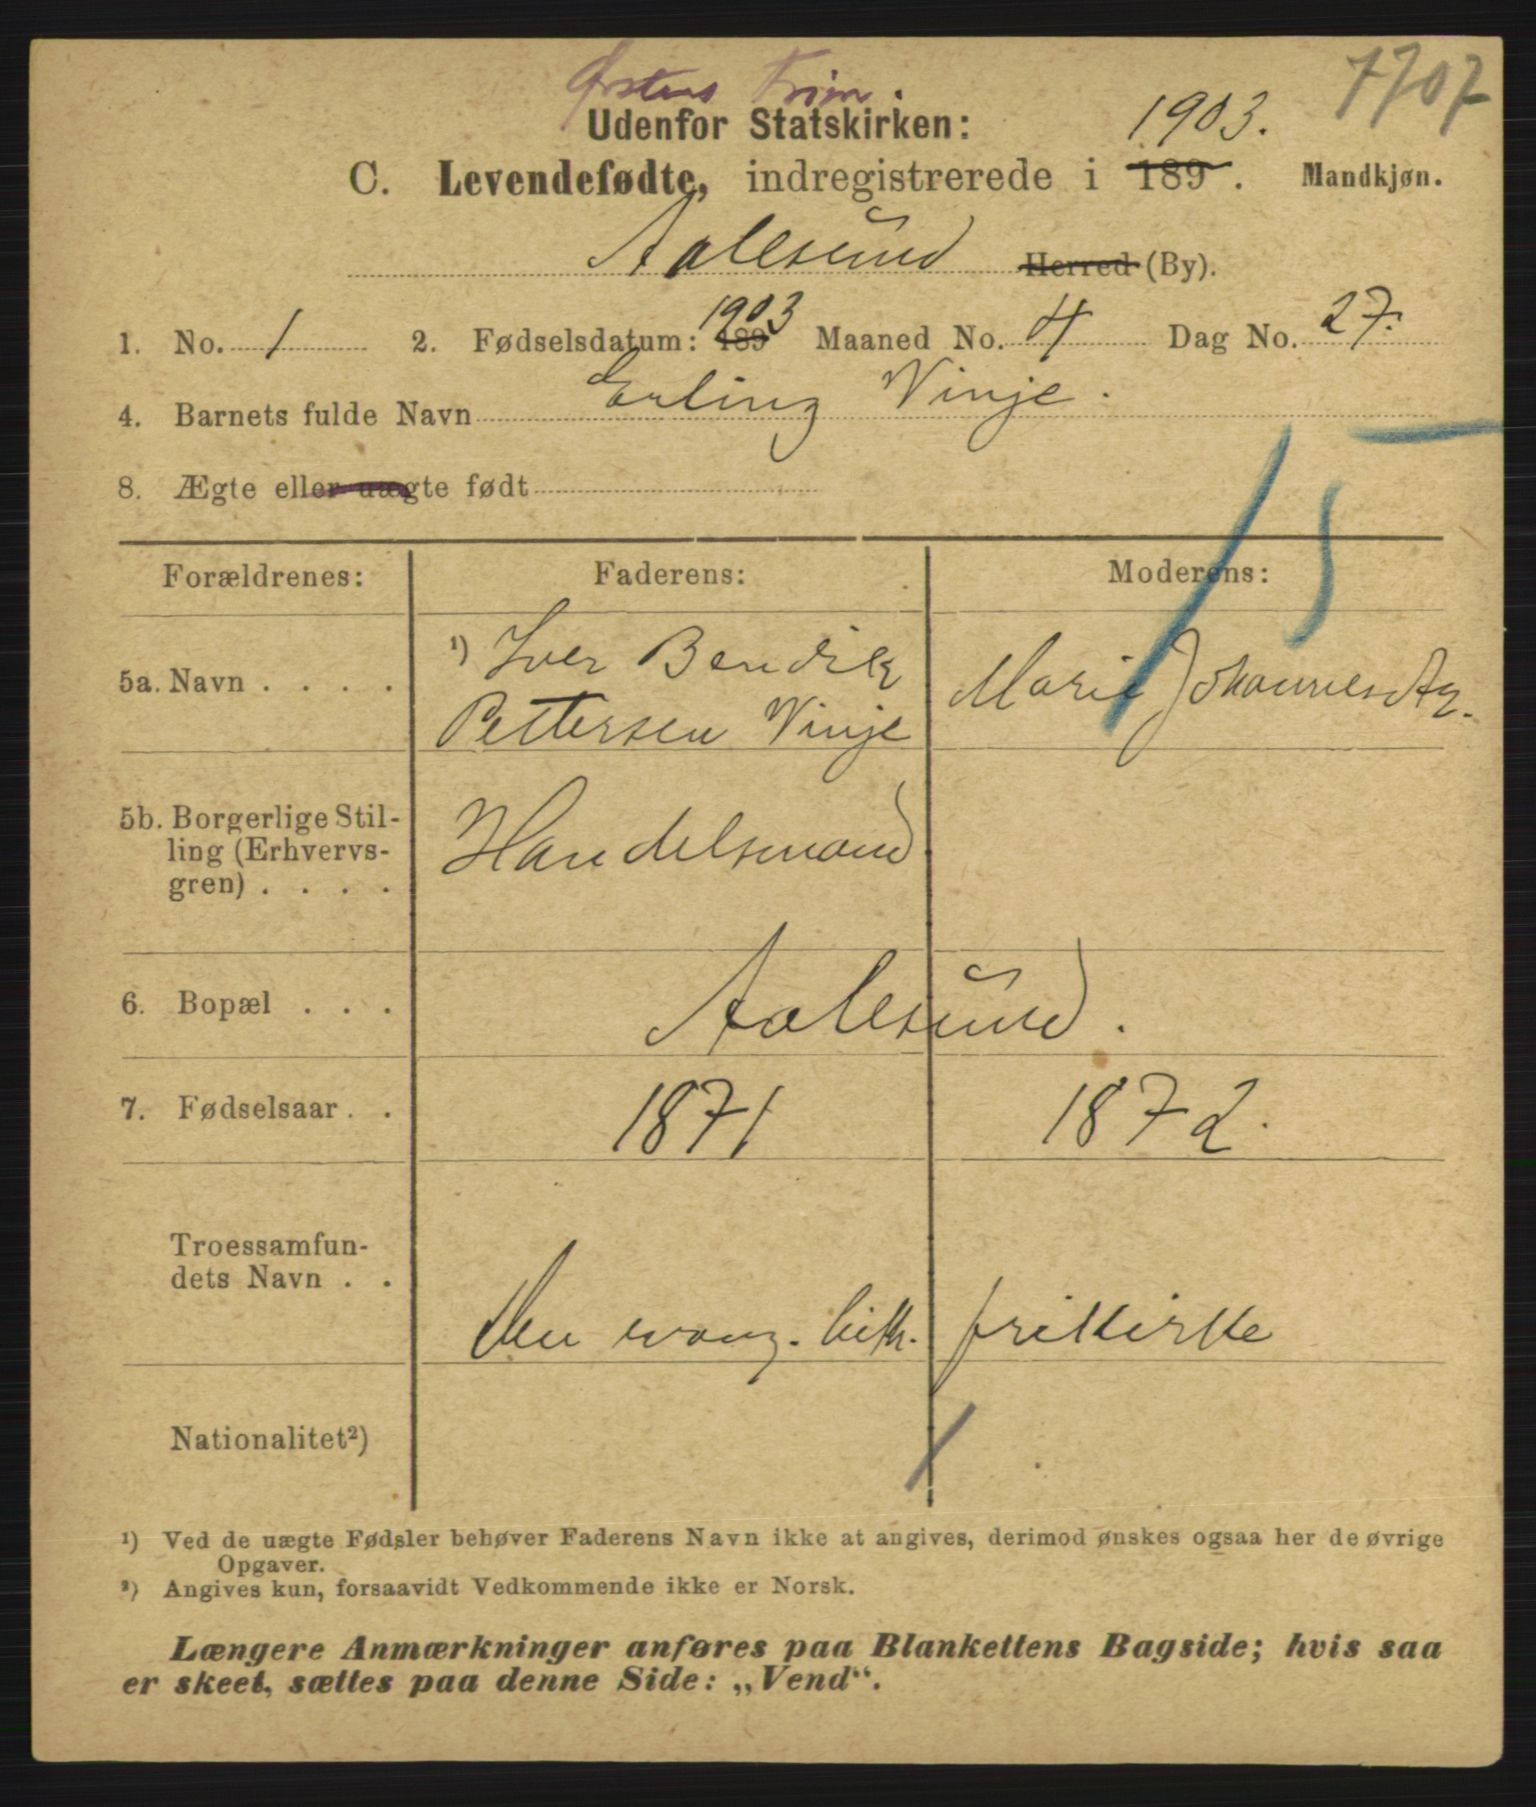 7707
Ørstens Frim.
Udenfor Statskirken:
1903.
C. Levendefødte, indregistrerede i 189 . Mandkjøn.
Aalesund Herred (By).
1903
1. No. 1 2. Fødselsdatum: 189 Maaned No. 4 Dag No. 27.
4. Barnets fulde Navn Erling Vinje.
8. Ægte eller uægte født
15
Forældrenes: Faderens: Moderens:
¹) Iver Bendik
5a. Navn . . . . Pettersen Vinje Marie Johannesdtr.
5b. Borgerlige Stil-
ling (Erhvervs- Handelsmand
gren) . . . .
6. Bopæl . . . Aalesund.
7. Fødselsaar . . 1871 1872.
Troessamfun-
dets Navn . . Den evang. luth. frikirke
Nationalitet²)
¹) Ved de uægte Fødsler behøver Faderens Navn ikke at angives, derimod ønskes ogsaa her de øvrige
Opgaver.
²) Angives kun, forsaavidt Vedkommende ikke er Norsk.
Længere Anmærkninger anføres paa Blankettens Bagside; hvis saa
er skeet, sættes paa denne Side: „Vend“.